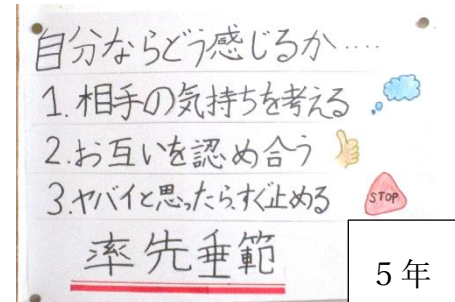 自分ならどう感じるか‥‥
1.相手の気持ちを考える
2.お互いを認め合う
3.ヤバイと思ったら、すぐ止める
STOP
率先垂範
5年